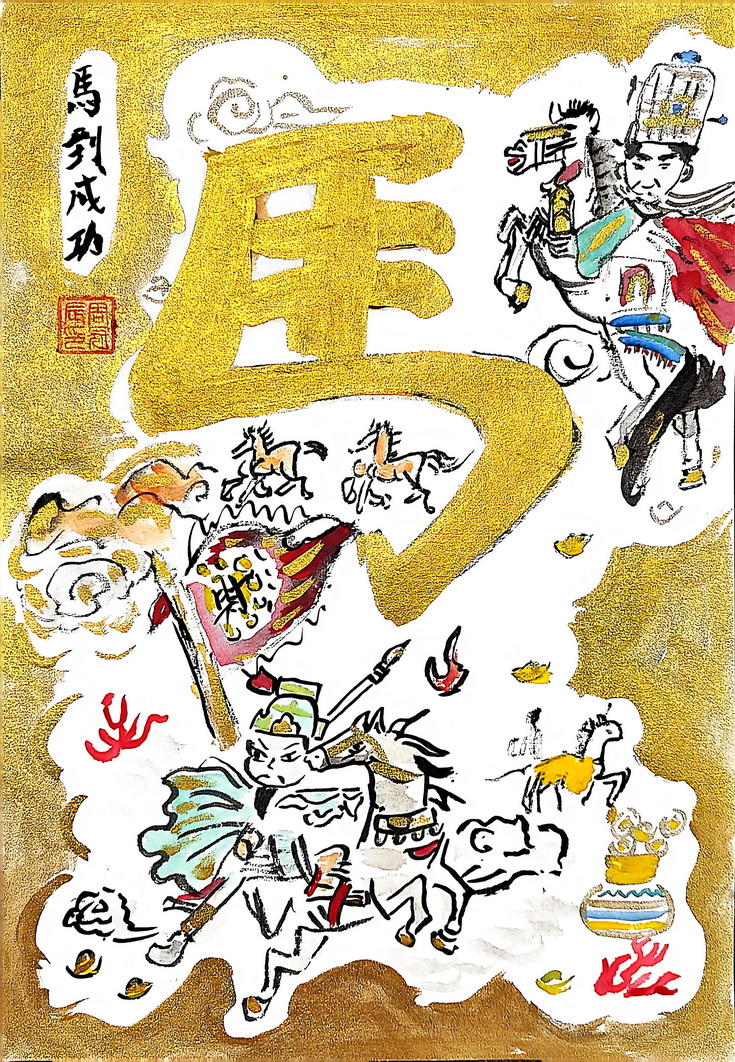 馬到成功
馬
財